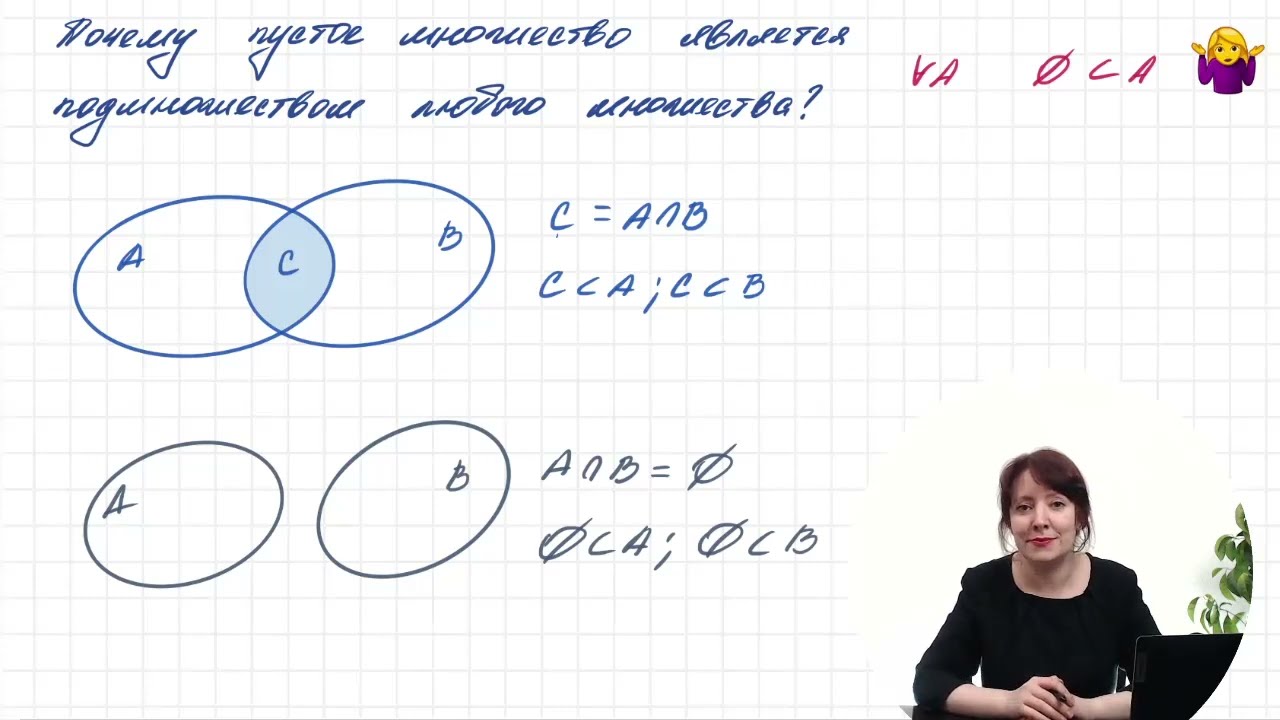 Почему пустое множество является
подмножеством любого множества?
∀A ∅ ⊂ A
A
C
B
C = A∩B
C ⊂ A ; C ⊂ B
A
B
A∩B = ∅
∅ ⊂ A ; ∅ ⊂ B